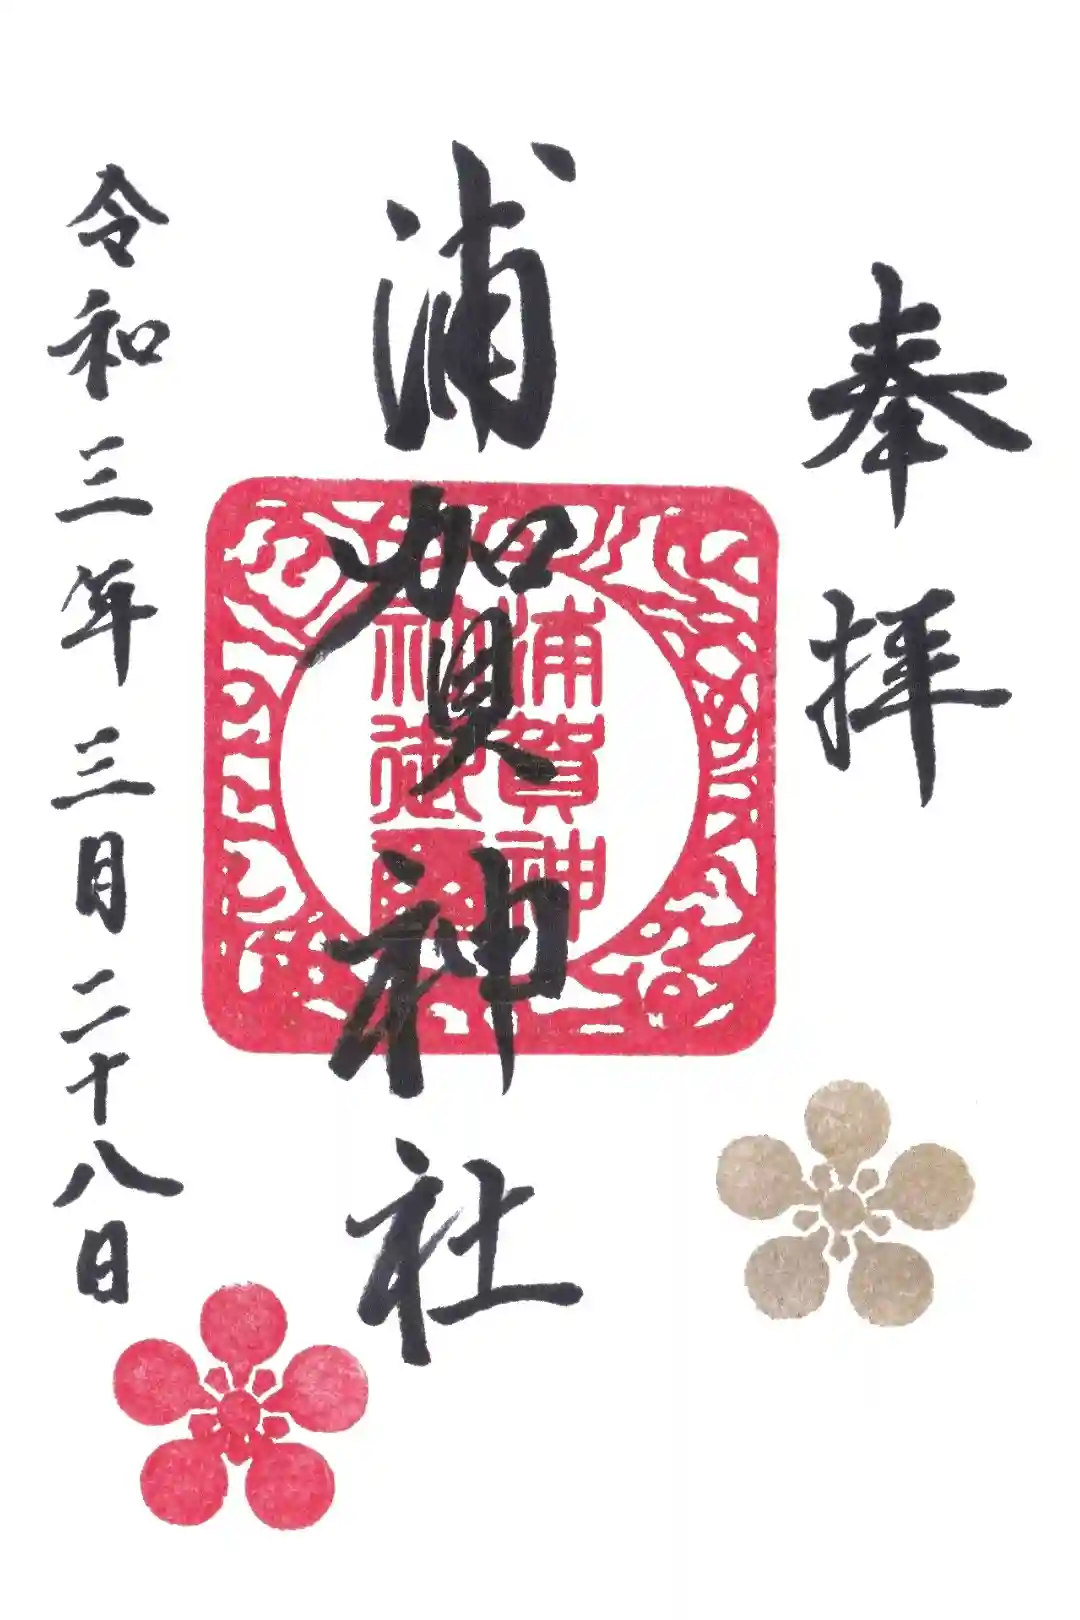 奉拝
浦賀神社
浦賀神
社御璽
令和三年三月二十八日